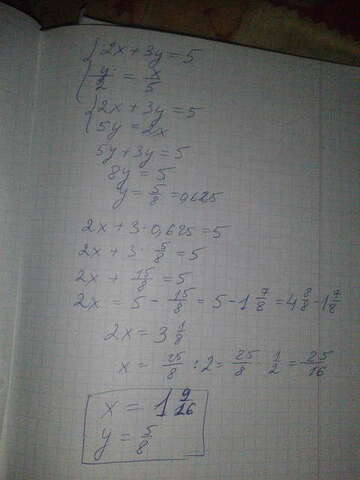 2x + 3y = 5
y/2 = x/5
2x + 3y = 5
5y = 2x
5y + 3y = 5
8y = 5
y = 5/8 = 0,625
2x + 3 · 0,625 = 5
2x + 3 · 5/8 = 5
2x + 15/8 = 5
2x = 5 - 15/8 = 5 - 1 7/8 = 4 8/8 - 1 7/8
2x = 3 1/8
x = 25/8 : 2 = 25/8 · 1/2 = 25/16
x = 1 9/16
y = 5/8